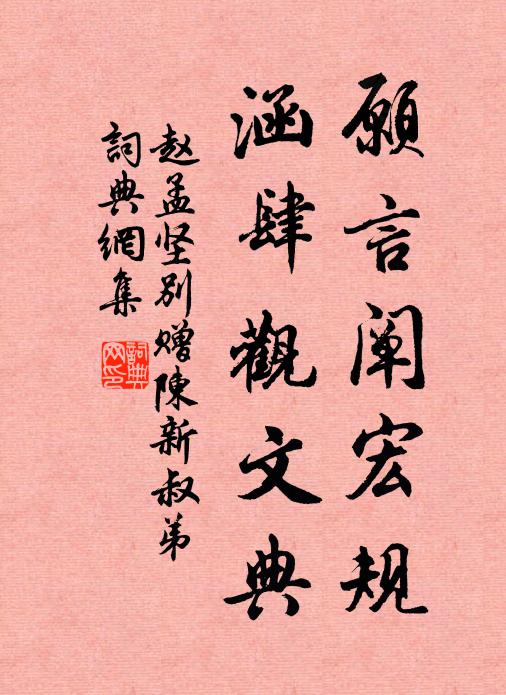 願言阐宏規
涵肆觀文典
赵孟坚别赠陳新叔弟
詞典網集
詞典网印